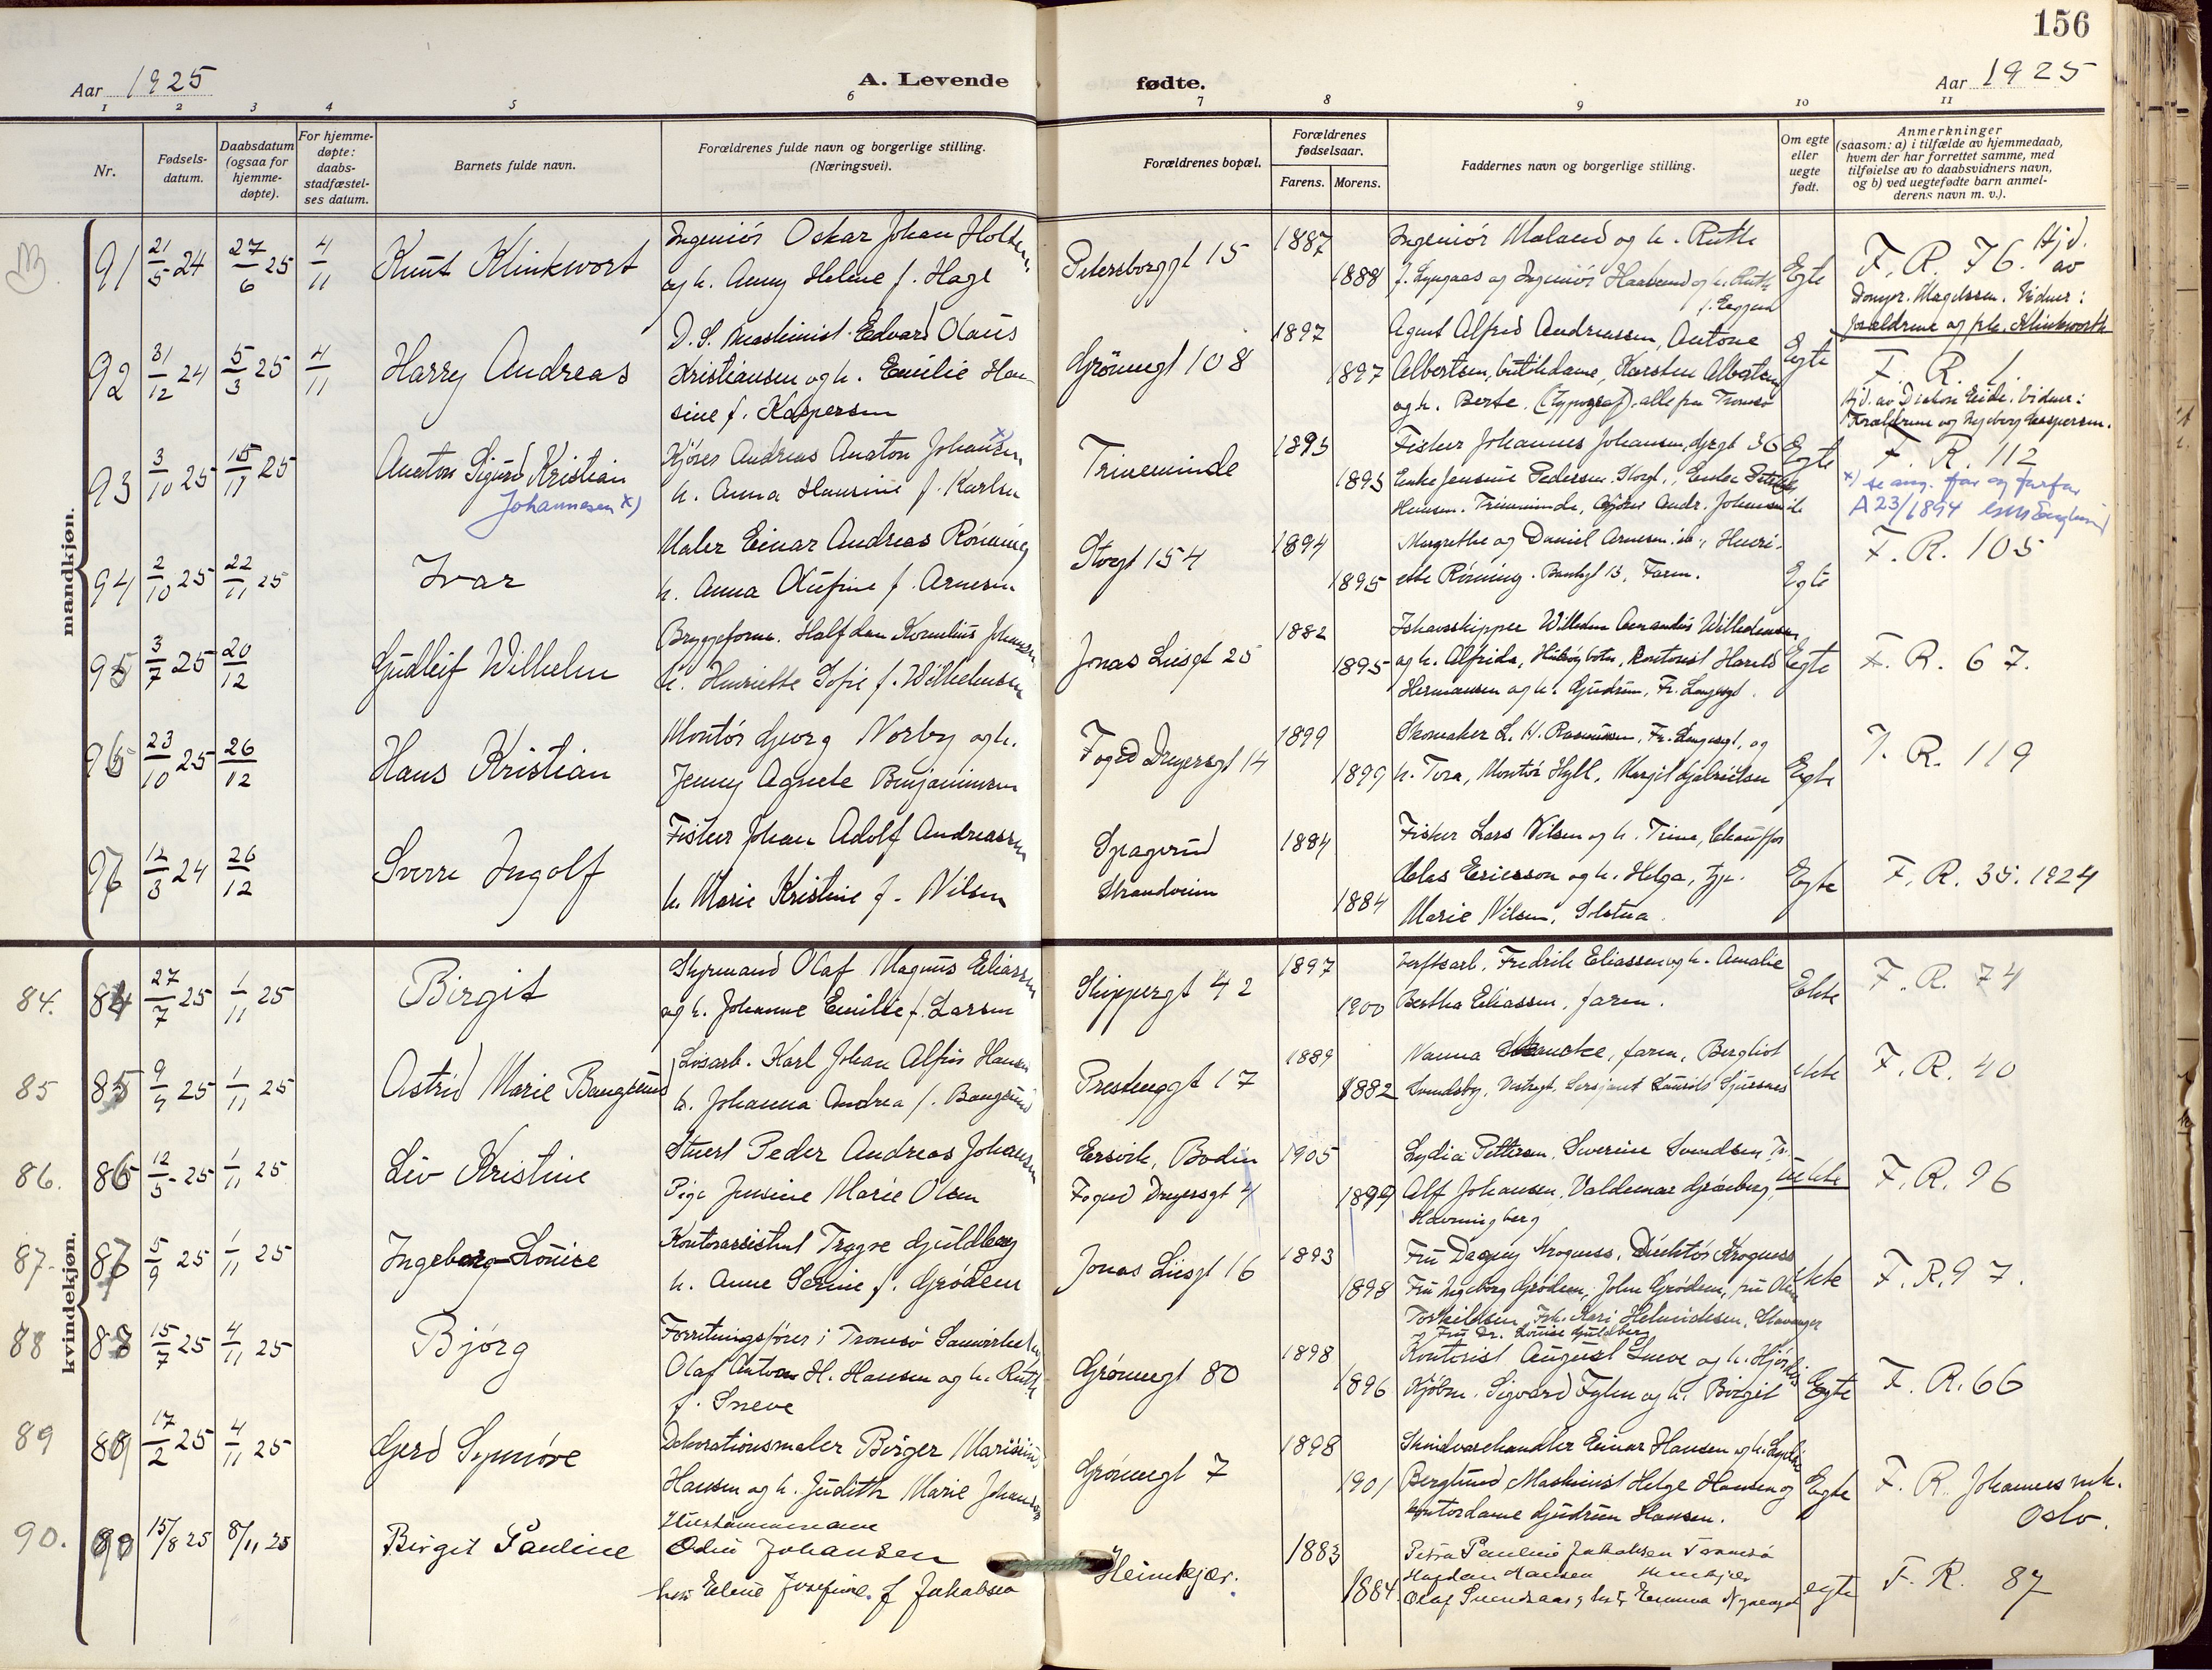 156
Aar 1925
A. Levende fødte.
Aar 1925
1 2 3 4 5 6 7 8 9 10 11
Nr.
Fødsels-
datum.
Daabsdatum
(ogsaa for
hjemme-
døpte).
For hjemme-
døpte:
daabs-
stadfæstel-
ses datum.
Barnets fulde navn.
Forældrenes fulde navn og borgerlige stilling.
(Næringsvei).
Forældrenes bopæl.
Forældrenes
fødselsaar.
Farens. Morens.
Faddernes navn og borgerlige stilling.
Om egte
eller
uegte
født.
Anmerkninger
(saasom: a) i tilfælde av hjemmedaab,
hvem der har forrettet samme, med
tilføielse av to daabsvidners navn,
og b) ved uegtefødte barn anmel-
derens navn m. v.).
mandkjøn.
91 21/5 24 27/6 25 4/11 Knut Klinkwort
Ingeniør Oskar Johan Holten
og h. Anny Helene f. Hage
Petersborggt 15 1887 1888
Ingeniør Maland og h. Ruth
f. Lyngaas og Ingeniør Haaland og h. Ruth
f. Eggen
Egte
F. R. 76. Hjd. av
Dompr. Magelssen. Vidner:
Forældrene og frk. Klinkworth
92 31/12 24 5/3 25 4/11 Harry Andreas
D. S. Maskinist Edvard Olaus
Kristiansen og h. Emilie Han-
sine f. Kaspersen
Grønnegt 108 1897 1897
Agent Alfred Andreassen, Antone
Albertsen, butikdame, Karsten Albertsen
og h. Berte. (Typograf), alle fra Tromsø
Egte
F. R. 1.
Hjd. av Diakon Eide. Vidner:
Forældrene og Ingeborg Kaspersen.
93 3/10 25 15/11 25 Anaton Sigurd Kristian
Johannesen x)
Kjører Andreas Anaton Johansen x)
h. Anna Hansine f. Karlsen
Trineminde 1893 1893
Fisker Johannes Johansen, Sjøgt 36
Enke Jensine Pedersen, Storgt., Enke
Hansen. Trineminde, Kjører Andr. Johansen
Egte
F. R. 112
x) se ang. far og farfar
A 23/1894
94 2/10 25 22/11 25 Ivar
Maler Einar Andreas Rønning
h. Anna Rufine f. Arnesen
Storgt 154 1894 1895
Margrethe og Daniel Arnesen. ib., Henri-
ette Rønning. Bankgt 13, Faren.
Egte
F. R. 105
95 3/7 25 20/12 Gudleif Wilhelm
Bryggeform. Halfdan Kornelius Johansen
h. Henriette Sofie f. Wilhelmsen
Jonas Liesgt 25 1882 1895
Ishavsskipper Willedm Amandus Wilhelmsen
og h. Alfrida, Kontorist Harald
Hermansen og h. Gudrun, Fr. Langesgt.
Egte
F. R. 67.
96 23/10 25 26/12 Hans Kristian
Montør Georg Norby og h.
Jenny Agnete Benjaminsen
Foged Dreyersgt 14 1899 1899
Skomaker L. H. Rasmussen, Fr. Langesgt, og
h. Tora, Montør Hyll, Margit Gabrielsen
Egte
F. R. 119
97 12/3 24 26/12 Sverre Ingolf
Fisker Johan Adolf Andreassen
h. Marie Kristine f. Nilsen
Strandveien 1884 1884
Fisker Lars Nilsen og h. Trine, Chauffør
Claes Ericsson og h. Helga, Tjp.
Marie Nilsen, Solstua.
Egte
F. R. 35. 1924
kvindekjøn.
84. 84 27/7 25 1/11 25 Birgit
Styrmand Olaf Magnus Eliassen
og h. Johanne Emilie f. Larsen
Skippergt 42 1897 1900
Verftsarb. Fredrik Eliassen og h. Amalie
Bertha Eliassen, faren.
Ekte
F. R. 74
85 85 9/4 25 1/11 25 Astrid Marie Bangsund
Løsarb. Karl Johan Alfin Hansen
h. Johanna Andrea f. Bangsund
Prestenggt 17 1889 1882
Nanna faren, Bergliot
Svendsby, Vestregt, Sersjant Laurits Sjursnes
ekte
F. R. 40
86. 86 12/5 25 1/11 25 Liv Kristine
Stuert Peder Andreas Johansen
Pige Jensine Marie Olsen
Ersvik, Bodin
Foged Dreyersgt 4 1905 1899
Lydia Pettersen, Severine Svendsen, Tr.
Alf Johansen, Valdemar Grønberg,
Havningberg
uekte
F. R. 96
87- 87 5/9 25 1/11 25 Ingeborg-Louise
Kontorassistent Trygve Guldberg
h. Anne Serine f. Grødem
Jonas Liesgt 16 1893 1898
Fru Dagny Krogness, Direktør Krogness
Fru Ingeborg Grødem, John Grødem, fru
Torkildsen, Frk. Kari Helmichsen, Stavanger
og Fru Dr. Louise Guldberg
ekte
F. R. 97.
88 88 15/7 25 4/11 25 Bjørg
Forretningsfører i Tromsø Samvirkelag
Olaf Anton H. Hansen og h. Ruth
f. Sneve
Grønnegt 80 1898 1896
Kontorist August Sneve og h. Hjørdis
Kjøbm. Sigvard Fylen og h. Birgit
Egte
F. R. 66
89 89 17/2 25 4/11 25 Gerd Synnøve
Dekorationsmaler Birger Marisius
Hansen og h. Judith Marie Johansen
Grønnegt 7 1898 1901
Skindvarehandler Einar Hansen og h. Lydia
Berglund, Maskinist Helge Hansen og
kontordame Gudrun Hansen.
Egte
F. R. Johannes mk.
Oslo.
90. 90 15/8 25 8/11 25 Birgit Pauline
Hustømmermann
Odin Johansen
hus. Eline Josefine f Jakobsen
Heimkjær. 1883 1884
Petra Pauline Jakobsen Tromsø
Haldan Hansen Heimkjær
Olaf Svendsen og hst. Emma
egte
F. R. 87